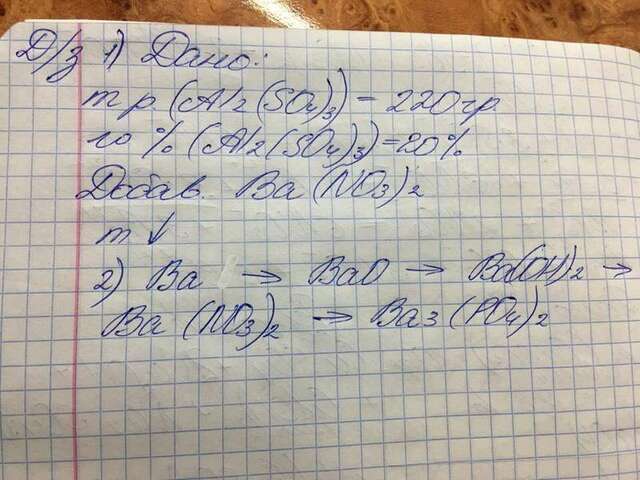 Д/з 1) Дано:
m р. (Al2(SO4)3) = 220гр.
ω % (Al2(SO4)3) = 20%
Добав. Ba(NO3)2
m ↓
2) Ba → BaO → Ba(OH)2 →
Ba(NO3)2 → Ba3(PO4)2